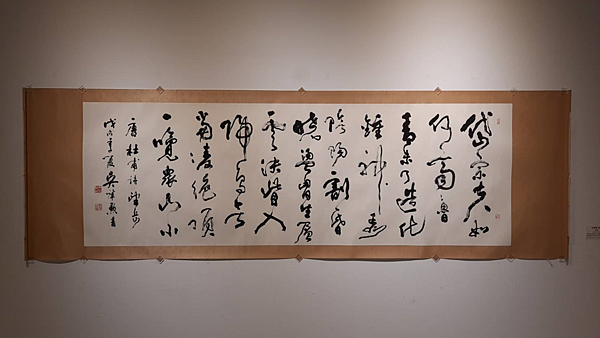 岱宗夫如
何齊魯
青未了造化
鍾神秀
陰陽割昏
曉盪胸生層
雲決眥入
歸鳥會
當凌絕頂
一覽衆山小
唐杜甫詩望岳
戊戌年夏吳書